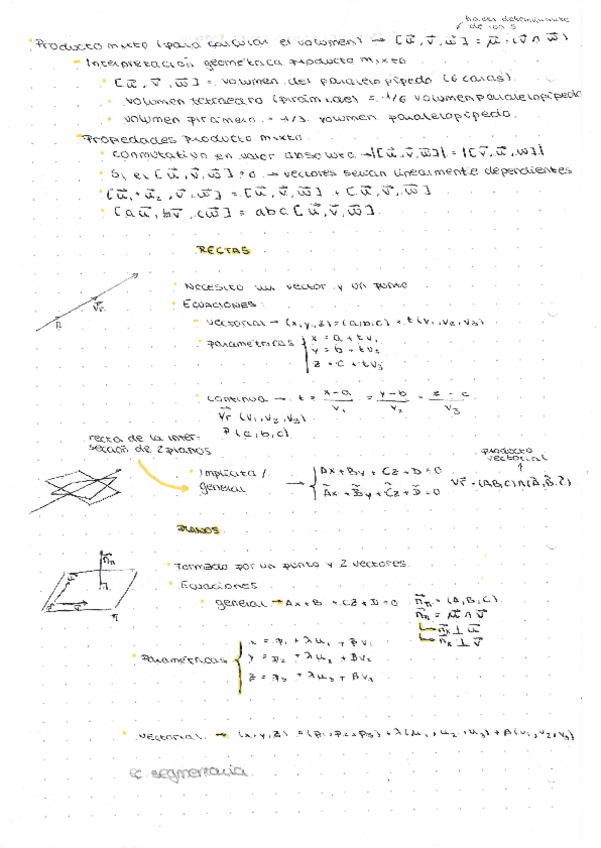 hacer determinante
de los 3
Producto mixto (para calcular el volumen) → [u⃗, v⃗, w⃗] = u⃗ · (v⃗ ∧ w⃗)
Interpretación geométrica producto mixto
[u⃗, v⃗, w⃗] = volumen del paralelopípedo (6 caras).
volumen tetraedro (pirámides) = 1/6 volumen paralelopípedo
volumen = 1/3 volumen paralelopípedo.
Propiedades producto mixto.
conmutativo en valor absoluto → |[u⃗, v⃗, w⃗]| = |[v⃗, u⃗, w⃗]|
Si el [u⃗, v⃗, w⃗] = 0 → vectores serán linealmente dependientes
[u⃗₁ + u⃗₂, v⃗, w⃗] = [u⃗, v⃗, w⃗] + [u⃗, v⃗, w⃗]
[au⃗, bv⃗, cw⃗] = abc [u⃗, v⃗, w⃗].
RECTAS
Necesito un vector y un punto
Ecuaciones:
vectorial → (x,y,z) = (a,b,c) + t(v₁, v₂, v₃)
paramétricas { x = a + tv₁
y = b + tv₂
z = c + tv₃
continua → t = x-a/v₁ = y-b/v₂ = z-c/v₃
v⃗r (v₁, v₂, v₃)
P (a, b, c)
recta de la inter-
sección de 2 planos
Implícita /
general → { Ax + By + Cz + D = 0
Ãx + B̃y + C̃z + D̃ = 0
producto
vectorial
v⃗r = (A,B,C) ∧ (Ã, B̃, C̃)
PLANOS
Formado por un punto y 2 vectores.
Ecuaciones
general → Ax + B + Cz + D = 0
n⃗π = (A, B, C).
n⃗π = u⃗ ∧ v⃗
n⃗π ⊥ u⃗
n⃗π ⊥ v⃗
Paramétricas { x = p₁ + λu₁ + βv₁
y = p₂ + λu₂ + βv₂
z = p₃ + λu₃ + βv₃
vectorial → (x,y,z) = (p₁, p₂, p₃) + λ(u₁, u₂, u₃) + β(v₁, v₂, v₃)
ec segmentaria